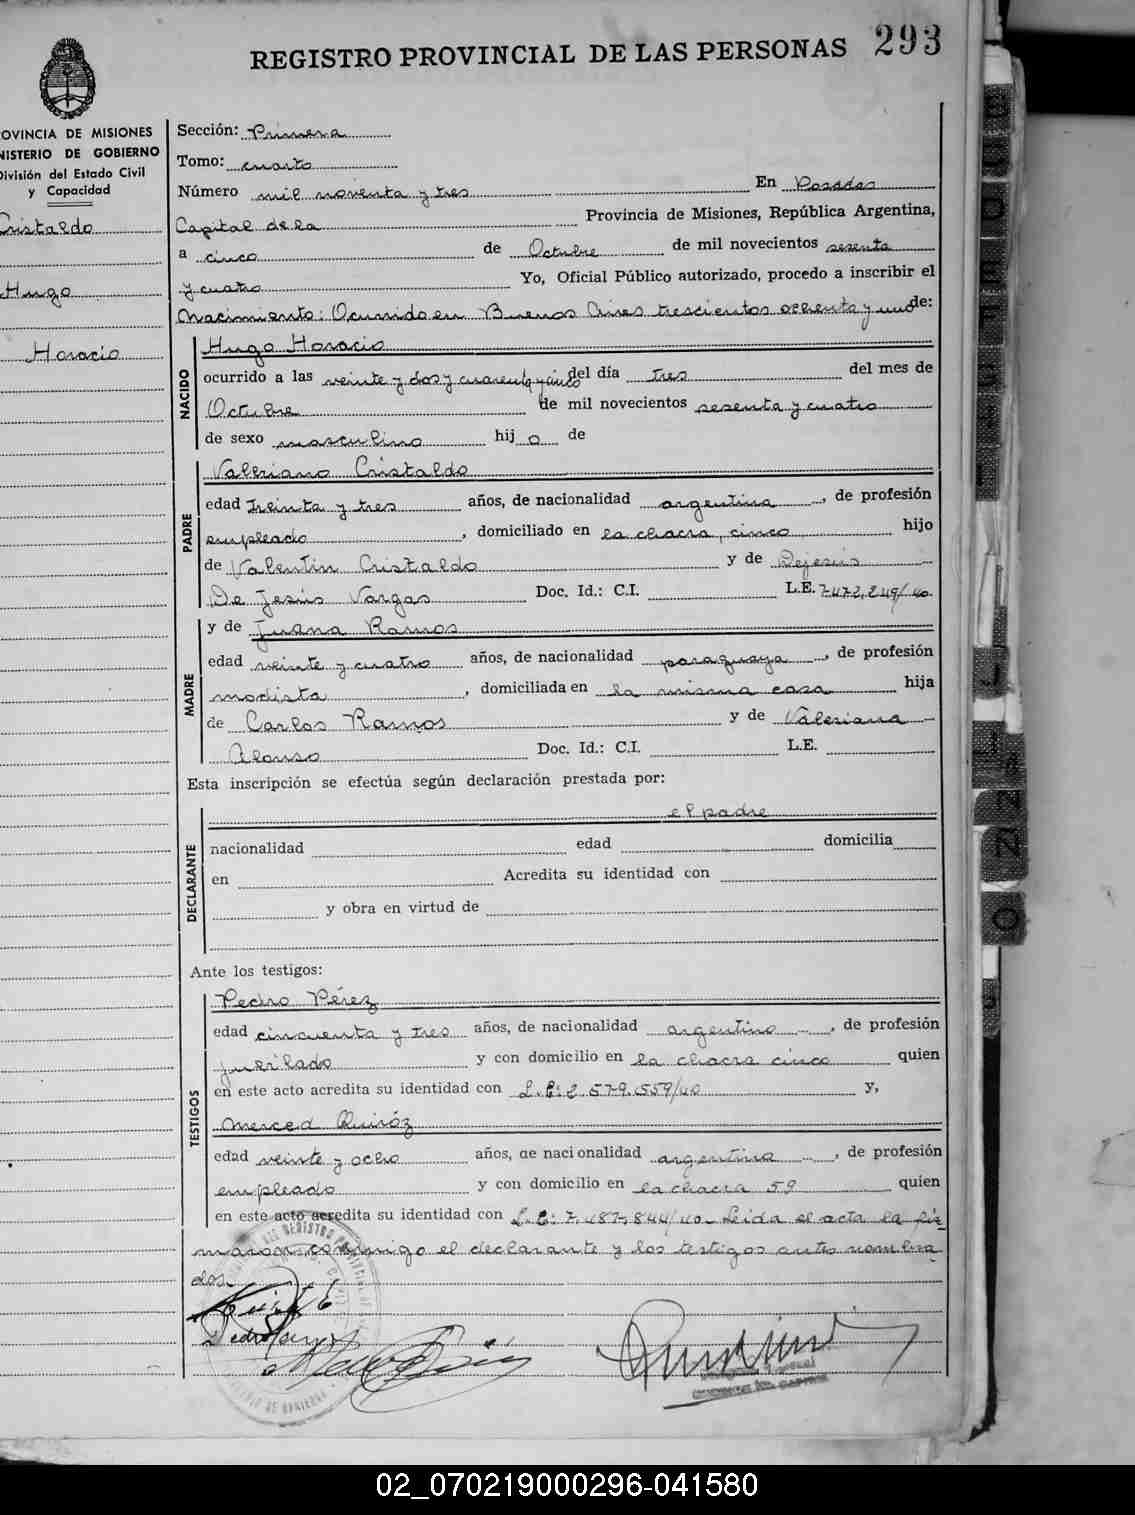 293
REGISTRO PROVINCIAL DE LAS PERSONAS
OVINCIA DE MISIONES
NISTERIO DE GOBIERNO
División del Estado Civil
y Capacidad
Cristaldo
Hugo
Horacio
Sección: Primera
Tomo: cuarto
Número mil noventa y tres En Posadas
Capital de la Provincia de Misiones, República Argentina,
a cinco de Octubre de mil novecientos sesenta
y cuatro Yo, Oficial Público autorizado, procedo a inscribir el
Nacimiento: Ocurrido en Buenos Aires trescientos ochenta y uno de:
NACIDO
Hugo Horacio
ocurrido a las veinte y dos y cuarenta y cinco del día tres del mes de
Octubre de mil novecientos sesenta y cuatro
de sexo masculino hij o de
PADRE
Valeriano Cristaldo
edad treinta y tres años, de nacionalidad argentina, de profesión
empleado, domiciliado en la chacra, cinco hijo
de Valentin Cristaldo y de Dejesús
De Jesús Vargas Doc. Id.: C.I. L.E. 7.472.849/40.
MADRE
y de Juana Ramos
edad veinte y cuatro años, de nacionalidad paraguaya, de profesión
modista, domiciliada en la misma casa hija
de Carlos Ramos y de Valeriana
Alonso Doc. Id.: C.I. L.E.
Esta inscripción se efectúa según declaración prestada por:
DECLARANTE
el padre
nacionalidad edad domicilia
en Acredita su identidad con
y obra en virtud de
Ante los testigos:
TESTIGOS
Pedro Pérez
edad cincuenta y tres años, de nacionalidad argentino, de profesión
jubilado y con domicilio en la chacra cinco quien
en este acto acredita su identidad con L.E: 2.579.559/40 y,
Merced Quiróz
edad veinte y ocho años, de nacionalidad argentina, de profesión
empleado y con domicilio en la chacra 59 quien
en este acto acredita su identidad con L.E: 7.487.844/40. Leida el acta la fir
maron conmigo el declarante y los testigos antes nombra
dos.
02_070219000296-041580